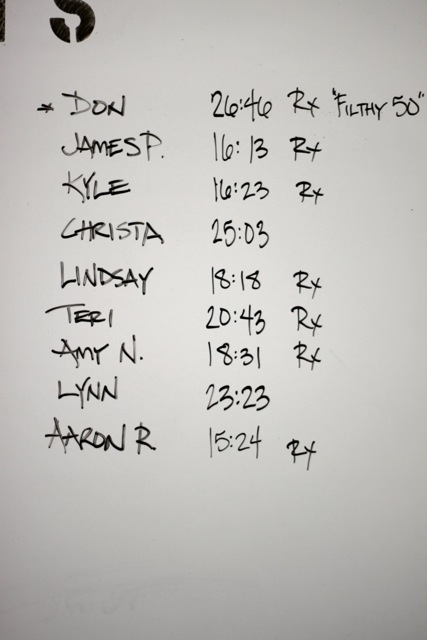 S
* DON 26:46 Rx "FILTHY 50"
JAMES P. 16:13 Rx
KYLE 16:23 Rx
CHRISTA 25:03
LINDSAY 18:18 Rx
TERI 20:43 Rx
AMY N. 18:31 Rx
LYNN 23:23
AARON R. 15:24 Rx